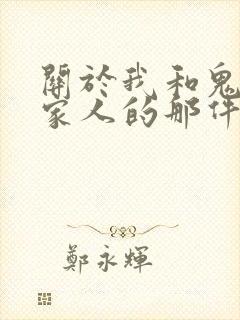 關於我和鬼
家人的那件
鄭永輝